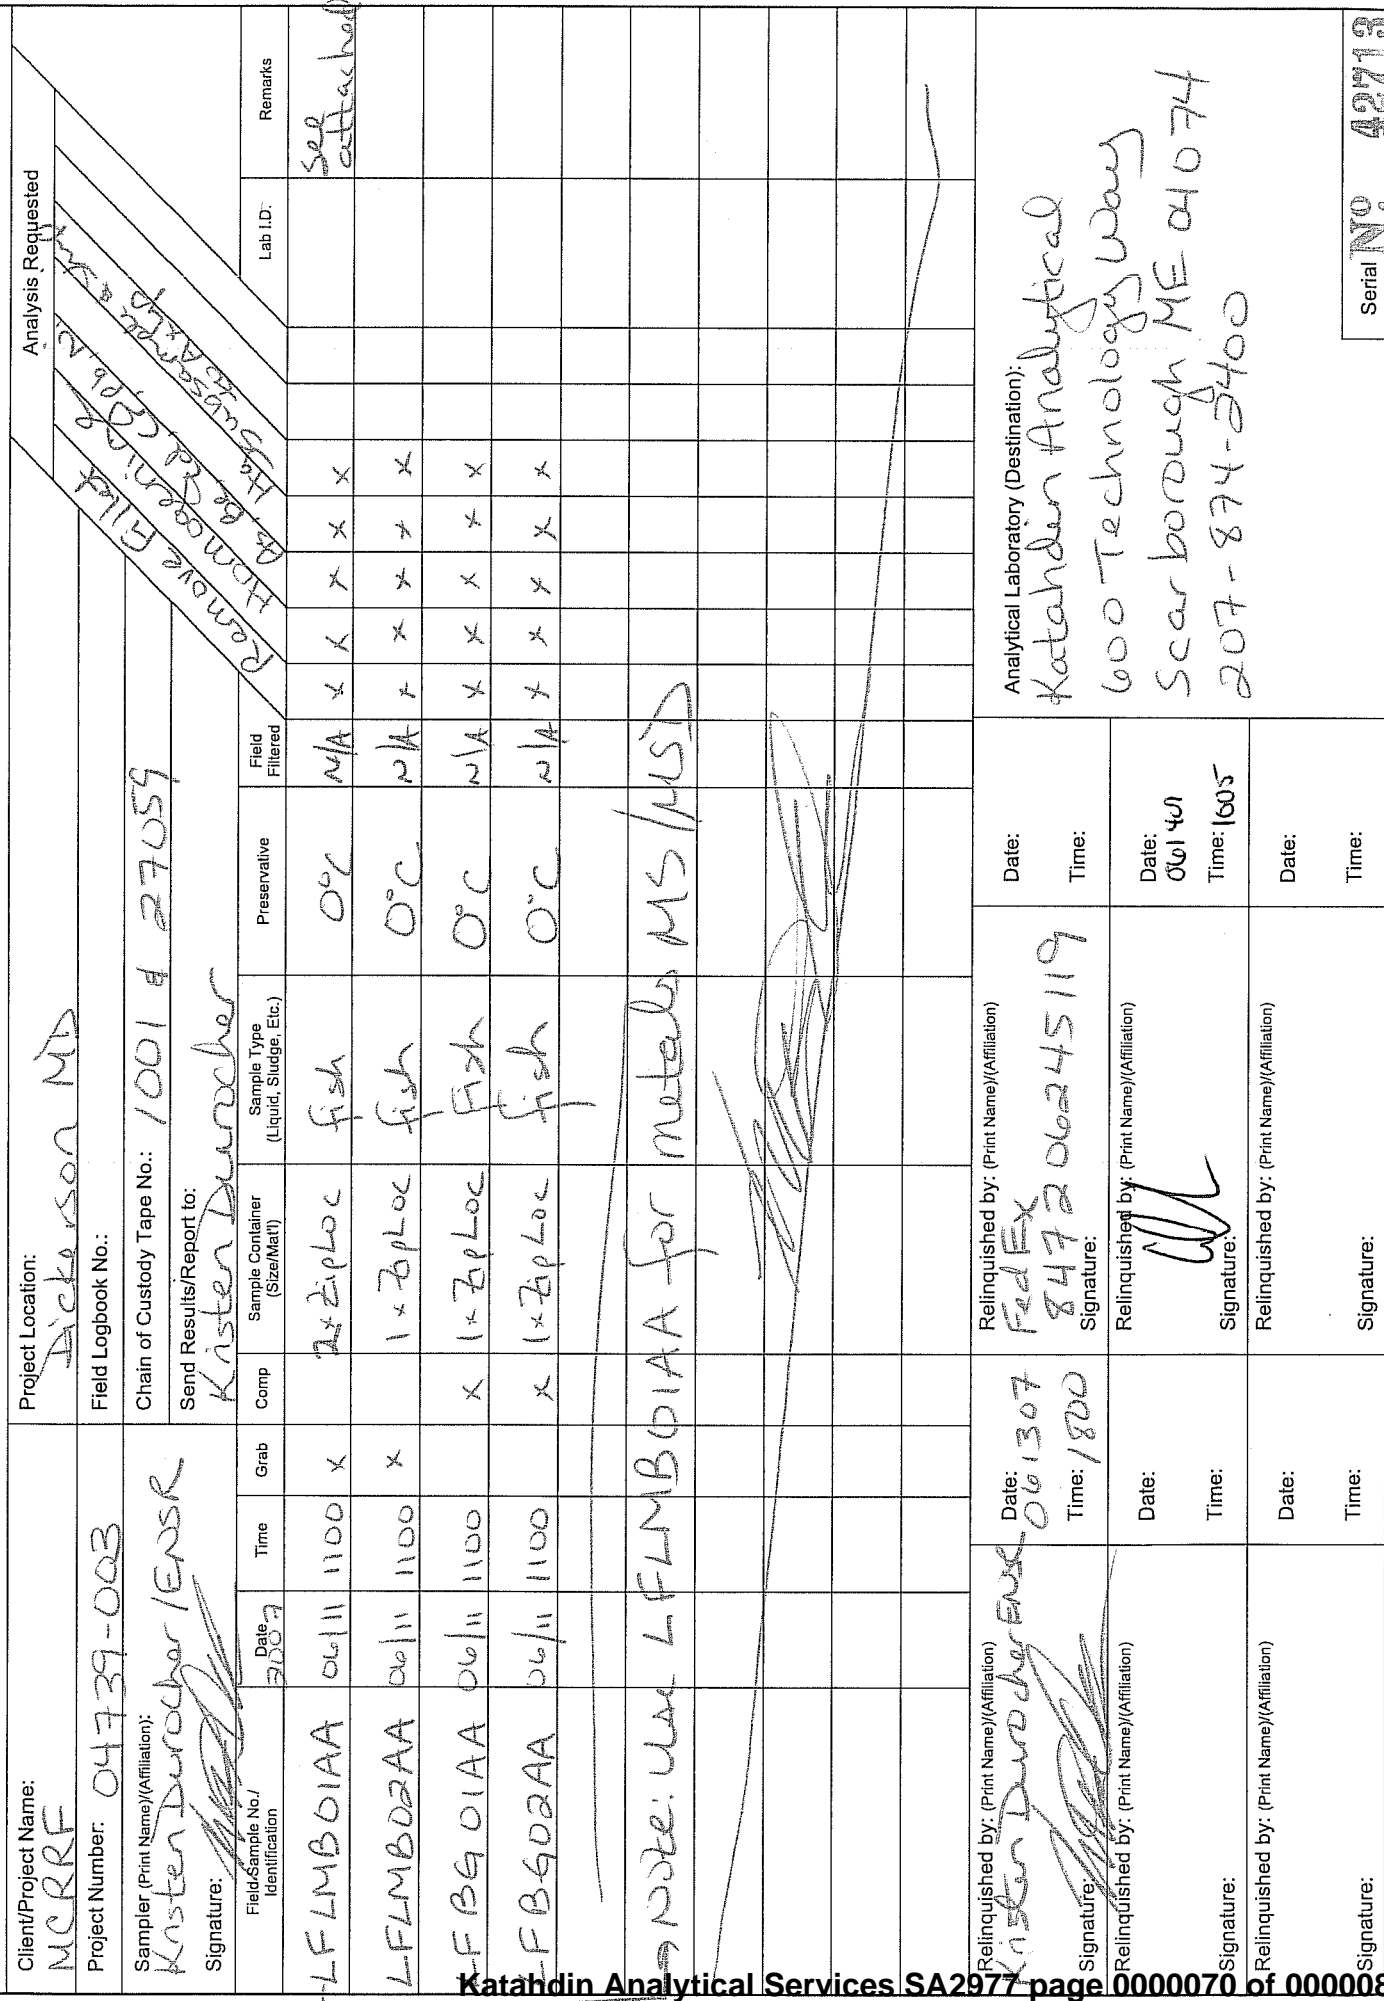 Client/Project Name:
MCRRF
Project Location:
Dickerson MD
Analysis Requested
Project Number: 04739-003
Field Logbook No.:
Sampler (Print Name)/(Affiliation):
Kristen Durocher/ENSR
Chain of Custody Tape No.: 1001 & 27059
Signature:
Send Results/Report to:
Kristen Durocher
Remove Fillet
Homogenize
As, Be, Cd, Cr, Pb, Ni,
Hg
Subsample & ship
to Axys
Field Sample No./
Identification
Date
2007
Time
Grab
Comp
Sample Container
(Size/Mat'l)
Sample Type
(Liquid, Sludge, Etc.)
Preservative
Field
Filtered
Lab I.D.
Remarks
LFLMB01AA 06/11 1100 x 2x ZipLoc fish 0°C N/A x x x x x See attached
LFLMB02AA 06/11 1100 x 1x ZipLoc fish 0°C N/A x x x x x
LFBG01AA 06/11 1100 x 1x ZipLoc Fish 0°C N/A x x x x x
LFBG02AA 06/11 1100 x 1x ZipLoc fish 0°C N/A x x x x x
Note: Use LFLMB01AA for metals MS/MSD
Relinquished by: (Print Name)/(Affiliation)
Kristen Durocher ENSR
Signature:
Date: 061307
Time: 1800
Relinquished by: (Print Name)/(Affiliation)
FedEx
847206245119
Signature:
Date:
Time:
Analytical Laboratory (Destination):
Katahdin Analytical
600 Technology Way
Scarborough ME 04074
207-874-2400
Relinquished by: (Print Name)/(Affiliation)
Signature:
Date:
Time:
Relinquished by: (Print Name)/(Affiliation)
Signature:
Date:
Time: 1005
Relinquished by: (Print Name)/(Affiliation)
Signature:
Date:
Time:
Relinquished by: (Print Name)/(Affiliation)
Signature:
Date:
Time:
Serial No. 42713
Katahdin Analytical Services SA2977 page 0000070 of 000008